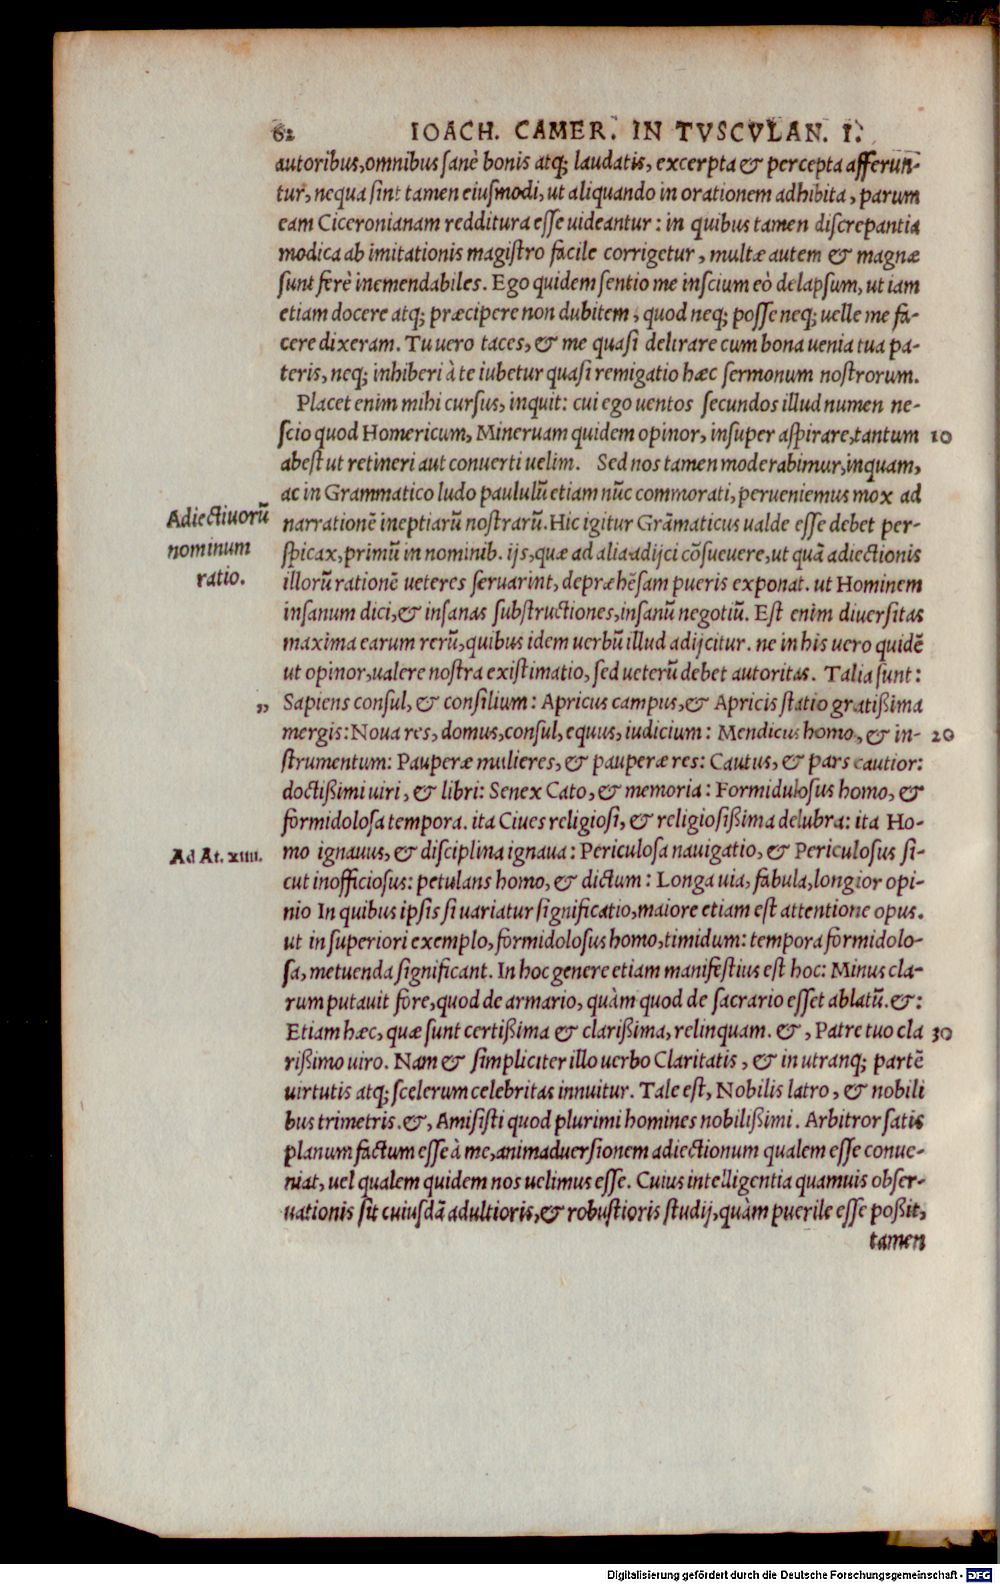 62 IOACH. CAMER. IN TVSCVLAN. I.
autoribus, omnibus sanè bonis atq; laudatis, excerpta & percepta afferun-
tur, nequa sint tamen eiusmodi, ut aliquando in orationem adhibita, parum
eam Ciceronianam redditura esse uideantur: in quibus tamen discrepantia
modica ab imitationis magistro facile corrigetur, multæ autem & magnæ
sunt ferè inemendabiles. Ego quidem sentio me inscium eò delapsum, ut iam
etiam docere atq; præcipere non dubitem, quod neq; posse neq; uelle me fa-
cere dixeram. Tu uero taces, & me quasi delirare cum bona uenia tua pa-
teris, neq; inhiberi à te iubetur quasi remigatio hæc sermonum nostrorum.
Placet enim mihi cursus, inquit: cui ego uentos secundos illud numen ne-
scio quod Homericum, Mineruam quidem opinor, insuper aspirare, tantum 10
abest ut retineri aut conuerti uelim. Sed nos tamen moderabimur, inquam,
ac in Grammatico ludo paululũ etiam nũc commorati, perueniemus mox ad
Adiectiuorũ
nominum
ratio.
narrationẽ ineptiarũ nostrarũ. Hic igitur Grãmaticus ualde esse debet per-
spicax, primũ in nominib. ijs, quæ ad alia adijci cõsueuere, ut quã adiectionis
illorũ rationẽ ueteres seruarint, depræhẽsam pueris exponat. ut Hominem
insanum dici, & insanas substructiones, insanũ negotiũ. Est enim diuersitas
maxima earum rerũ, quibus idem uerbũ illud adijcitur. ne in his uero quidẽ
ut opinor, ualere nostra existimatio, sed ueterũ debet autoritas. Talia sunt:
„ Sapiens consul, & consilium: Apricus campus, & Apricis statio gratißima
mergis: Noua res, domus, consul, equus, iudicium: Mendicus homo, & in- 20
strumentum: Pauperæ mulieres, & pauperæ res: Cautus, & pars cautior:
doctißimi uiri, & libri: Senex Cato, & memoria: Formidulosus homo, &
formidolosa tempora. ita Ciues religiosi, & religiosißima delubra: ita Ho-
Ad At. XIIII.
mo ignauus, & disciplina ignaua: Periculosa nauigatio, & Periculosus si-
cut inofficiosus: petulans homo, & dictum: Longa uia, fabula, longior opi-
nio In quibus ipsis si uariatur significatio, maiore etiam est attentione opus.
ut in superiori exemplo, formidolosus homo, timidum: tempora formidolo-
sa, metuenda significant. In hoc genere etiam manifestius est hoc: Minus cla-
rum putauit fore, quod de armario, quàm quod de sacrario esset ablatũ. &:
Etiam hæc, quæ sunt certißima & clarißima, relinquam. &, Patre tuo cla 30
rißimo uiro. Nam & simpliciter illo uerbo Claritatis, & in utranq; partẽ
uirtutis atq; scelerum celebritas innuitur. Tale est, Nobilis latro, & nobili
bus trimetris. &, Amisisti quod plurimi homines nobilißimi. Arbitror satis
planum factum esse à me, animaduersionem adiectionum qualem esse conue-
niat, uel qualem quidem nos uelimus esse. Cuius intelligentia quamuis obser-
uationis sit cuiusdã adultioris, & robustioris studij, quàm puerile esse poßit,
tamen
Digitalisierung gefördert durch die Deutsche Forschungsgemeinschaft - DFG